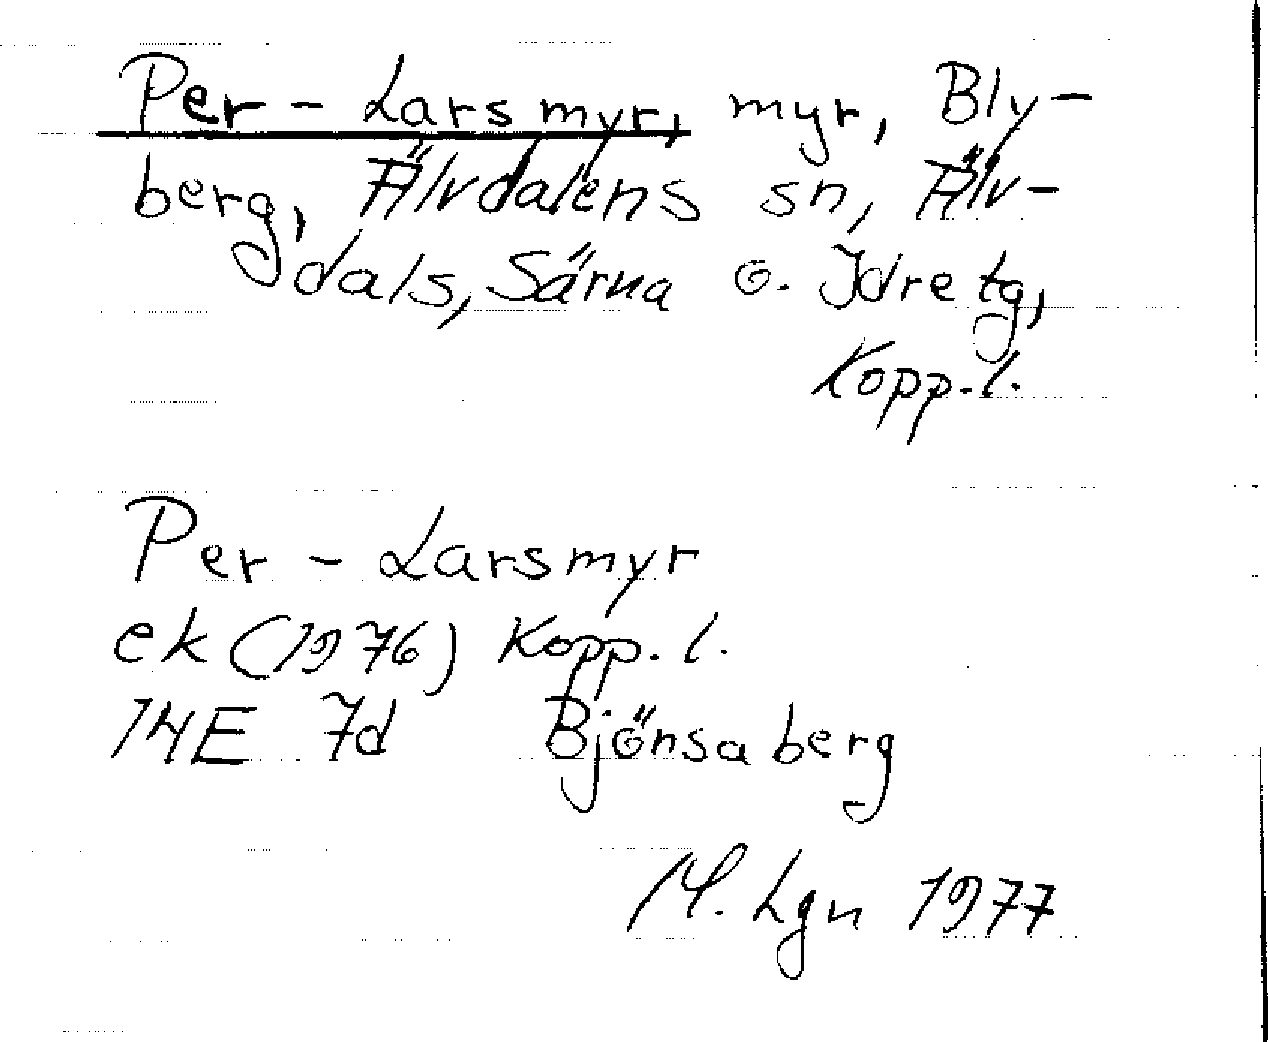 Per - Larsmyr, myr, Bly-
berg, Älvdalens sn, Älv-
dals, Särna o. Idre tg,
Kopp. l.
Per - Larsmyr
ek (1976) Kopp. l.
14E 7d Björnsaberg
M. Lgn 1977